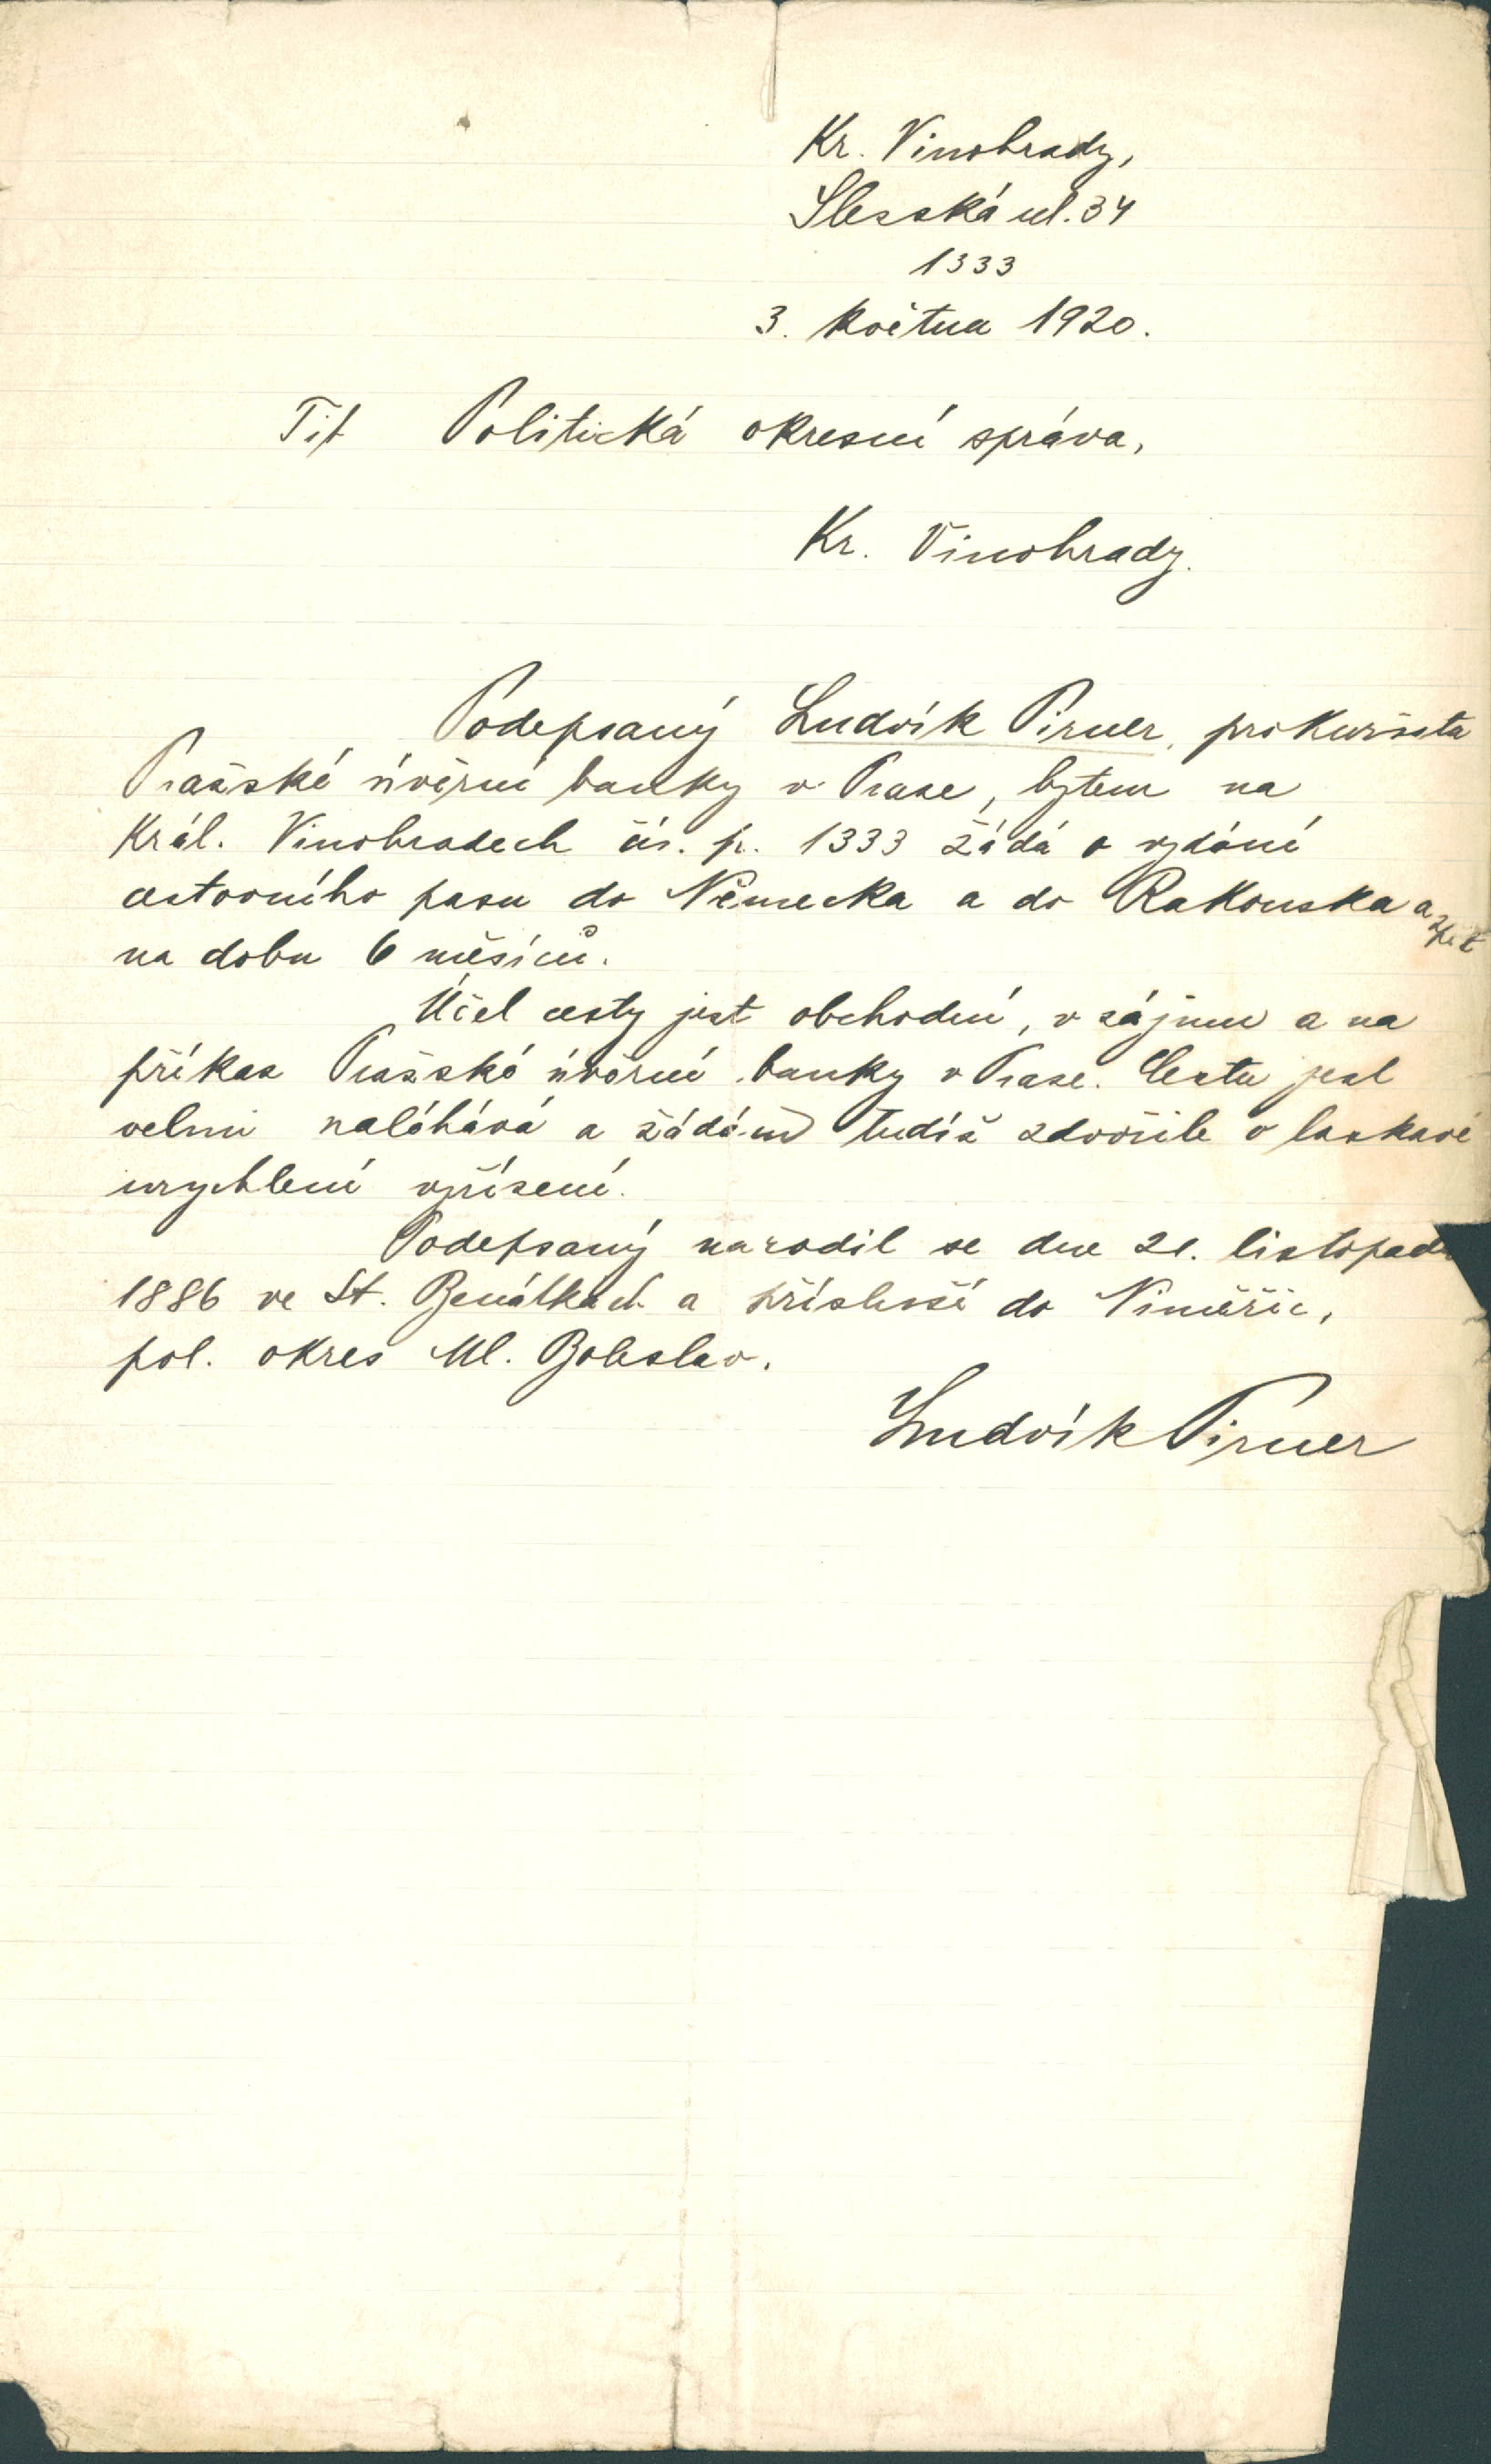 Kr. Vinohrady,
Slesská ul. 34
1333
3. května 1920.
Tit Politická okresní správa,
Kr. Vinohrady.
Podepsaný Ludvík Pirner, prokurista
Pražské úvěrní banky v Praze, bytem na
Král. Vinohradech čís. p. 1333 žádá o vydání
cestovního pasu do Německa a do Rakouska a zpět
na dobu 6 měsíců.
Účel cesty jest obchodní, v zájmu a na
příkaz Pražské úvěrní banky v Praze. Cesta jest
velmi naléhává a žádám tudíž zdvořile o laskavé
urychlení vyřízení.
Podepsaný narodil se dne 21. listopadu
1886 ve St. Benátkách a přísluší do Niměřic,
pol. okres Ml. Boleslav.
Ludvík Pirner